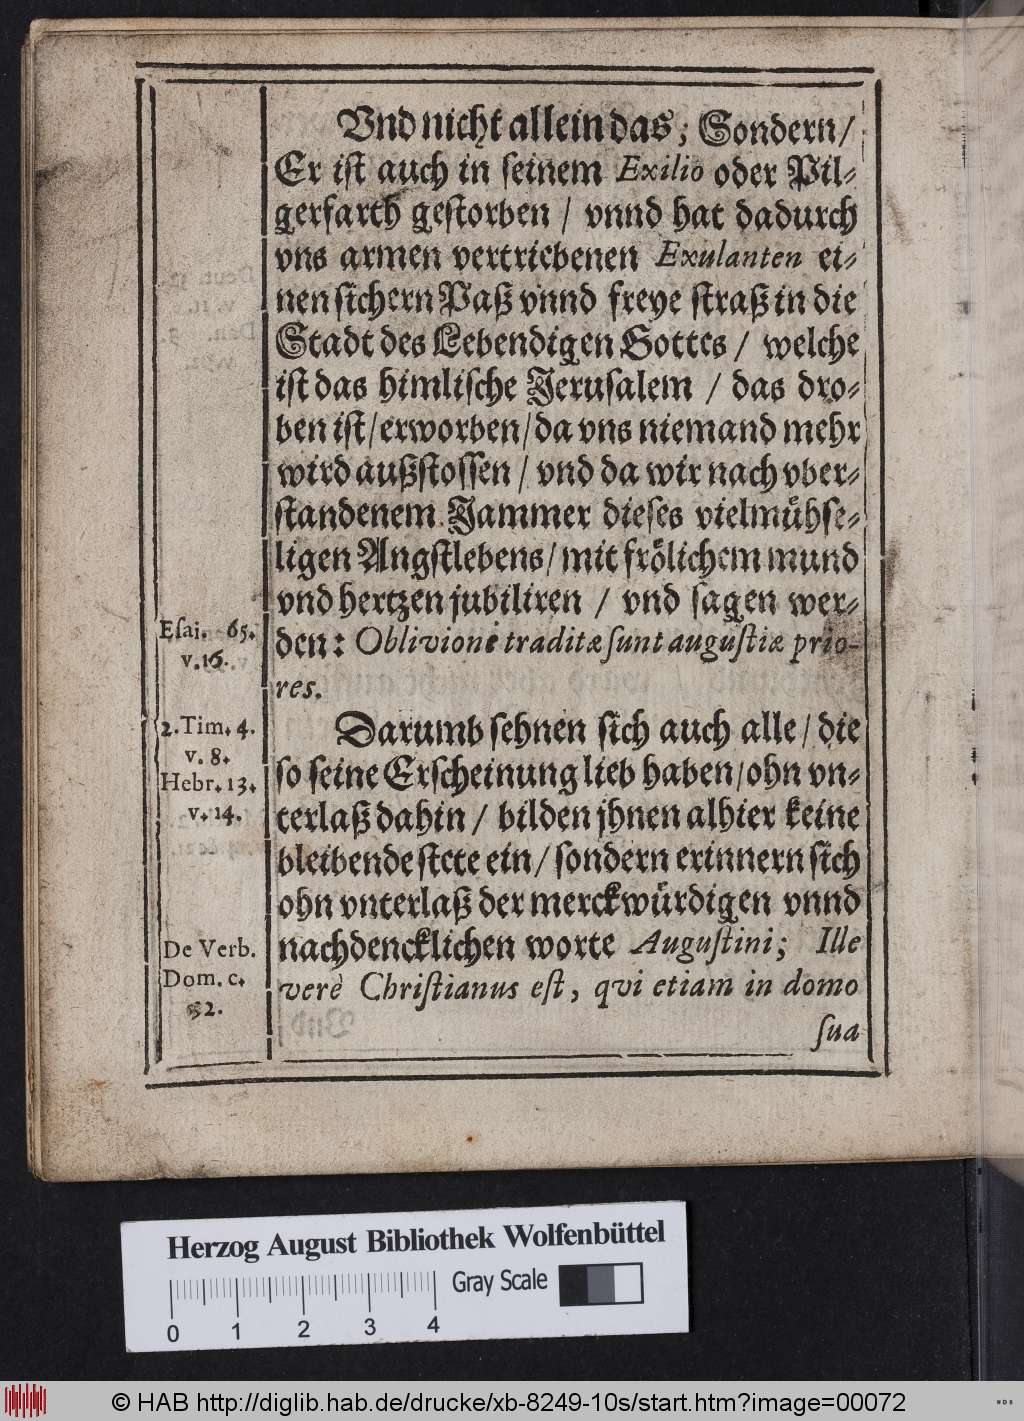 Vnd nicht allein das; Sondern/
Er ist auch in seinem Exilio oder Pil-
gerfarth gestorben / vnnd hat dadurch
vns armen vertriebenen Exulanten ei-
nen sichern Paß vnnd freye straß in die
Stadt des Lebendigen Gottes / welche
ist das himlische Jerusalem / das dro-
ben ist/erworben/da vns niemand mehr
wird außstossen / vnd da wir nach vber-
standenem Jammer dieses vielmühse-
ligen Angstlebens/mit frölichem mund
vnd hertzen jubiliren / vnd sagen wer-
Esai. 65.
v.16.
den: Oblivioni traditæ sunt augustiæ prio-
res.
2.Tim.4.
v. 8.
Hebr.13.
v.14.
Darumb sehnen sich auch alle/die
so seine Erscheinung lieb haben/ohn vn-
terlaß dahin / bilden jhnen alhier keine
bleibende stete ein/sondern erinnern sich
ohn vnterlaß der merckwürdigen vnnd
De Verb.
Dom. c.
nachdencklichen worte Augustini; Ille
verè Christianus est, qvi etiam in domo
sua
Herzog August Bibliothek Wolfenbüttel
Gray Scale
0 1 2 3 4
© HAB http://diglib.hab.de/drucke/xb-8249-10s/start.htm?image=00072